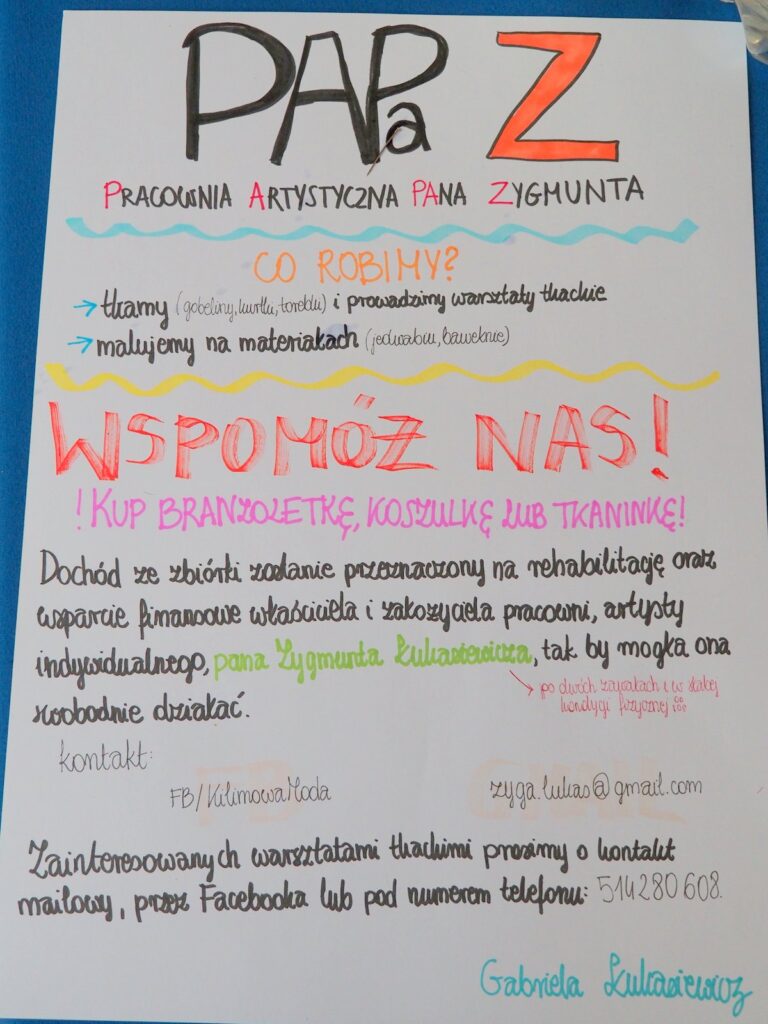 PAPa Z
PRACOWNIA ARTYSTYCZNA PANA ZYGMUNTA
CO ROBIMY?
→ tkamy (gobeliny, kurtki, torebki) i prowadzimy warsztaty tkackie
→ malujemy na materiałach (jedwabiu, bawełnie)
WSPOMÓŻ NAS!
! KUP BRANZOLETKĘ, KOSZULKĘ LUB TKANINKĘ!
Dochód ze zbiórki zostanie przeznaczony na rehabilitację oraz
wsparcie finansowe właściciela i założyciela pracowni, artysty
indywidualnego, pana Zygmunta Łukasiewicza, tak by mogła ona
swobodnie działać.
→ po dwóch zawałach i w słabej
kondycji fizycznej
kontakt:
FB/KilimowaModa
zyga.lukas@gmail.com
Zainteresowanych warsztatami tkackimi prosimy o kontakt
mailowy, przez Facebooka lub pod numerem telefonu: 514 280 608.
Gabriela Łukasiewicz